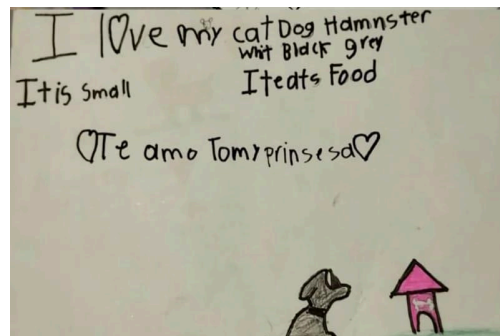 I love my cat Dog Hamnster
whit Black grey
It is small
It eats Food
♡Te amo Tomy prinsesa♡